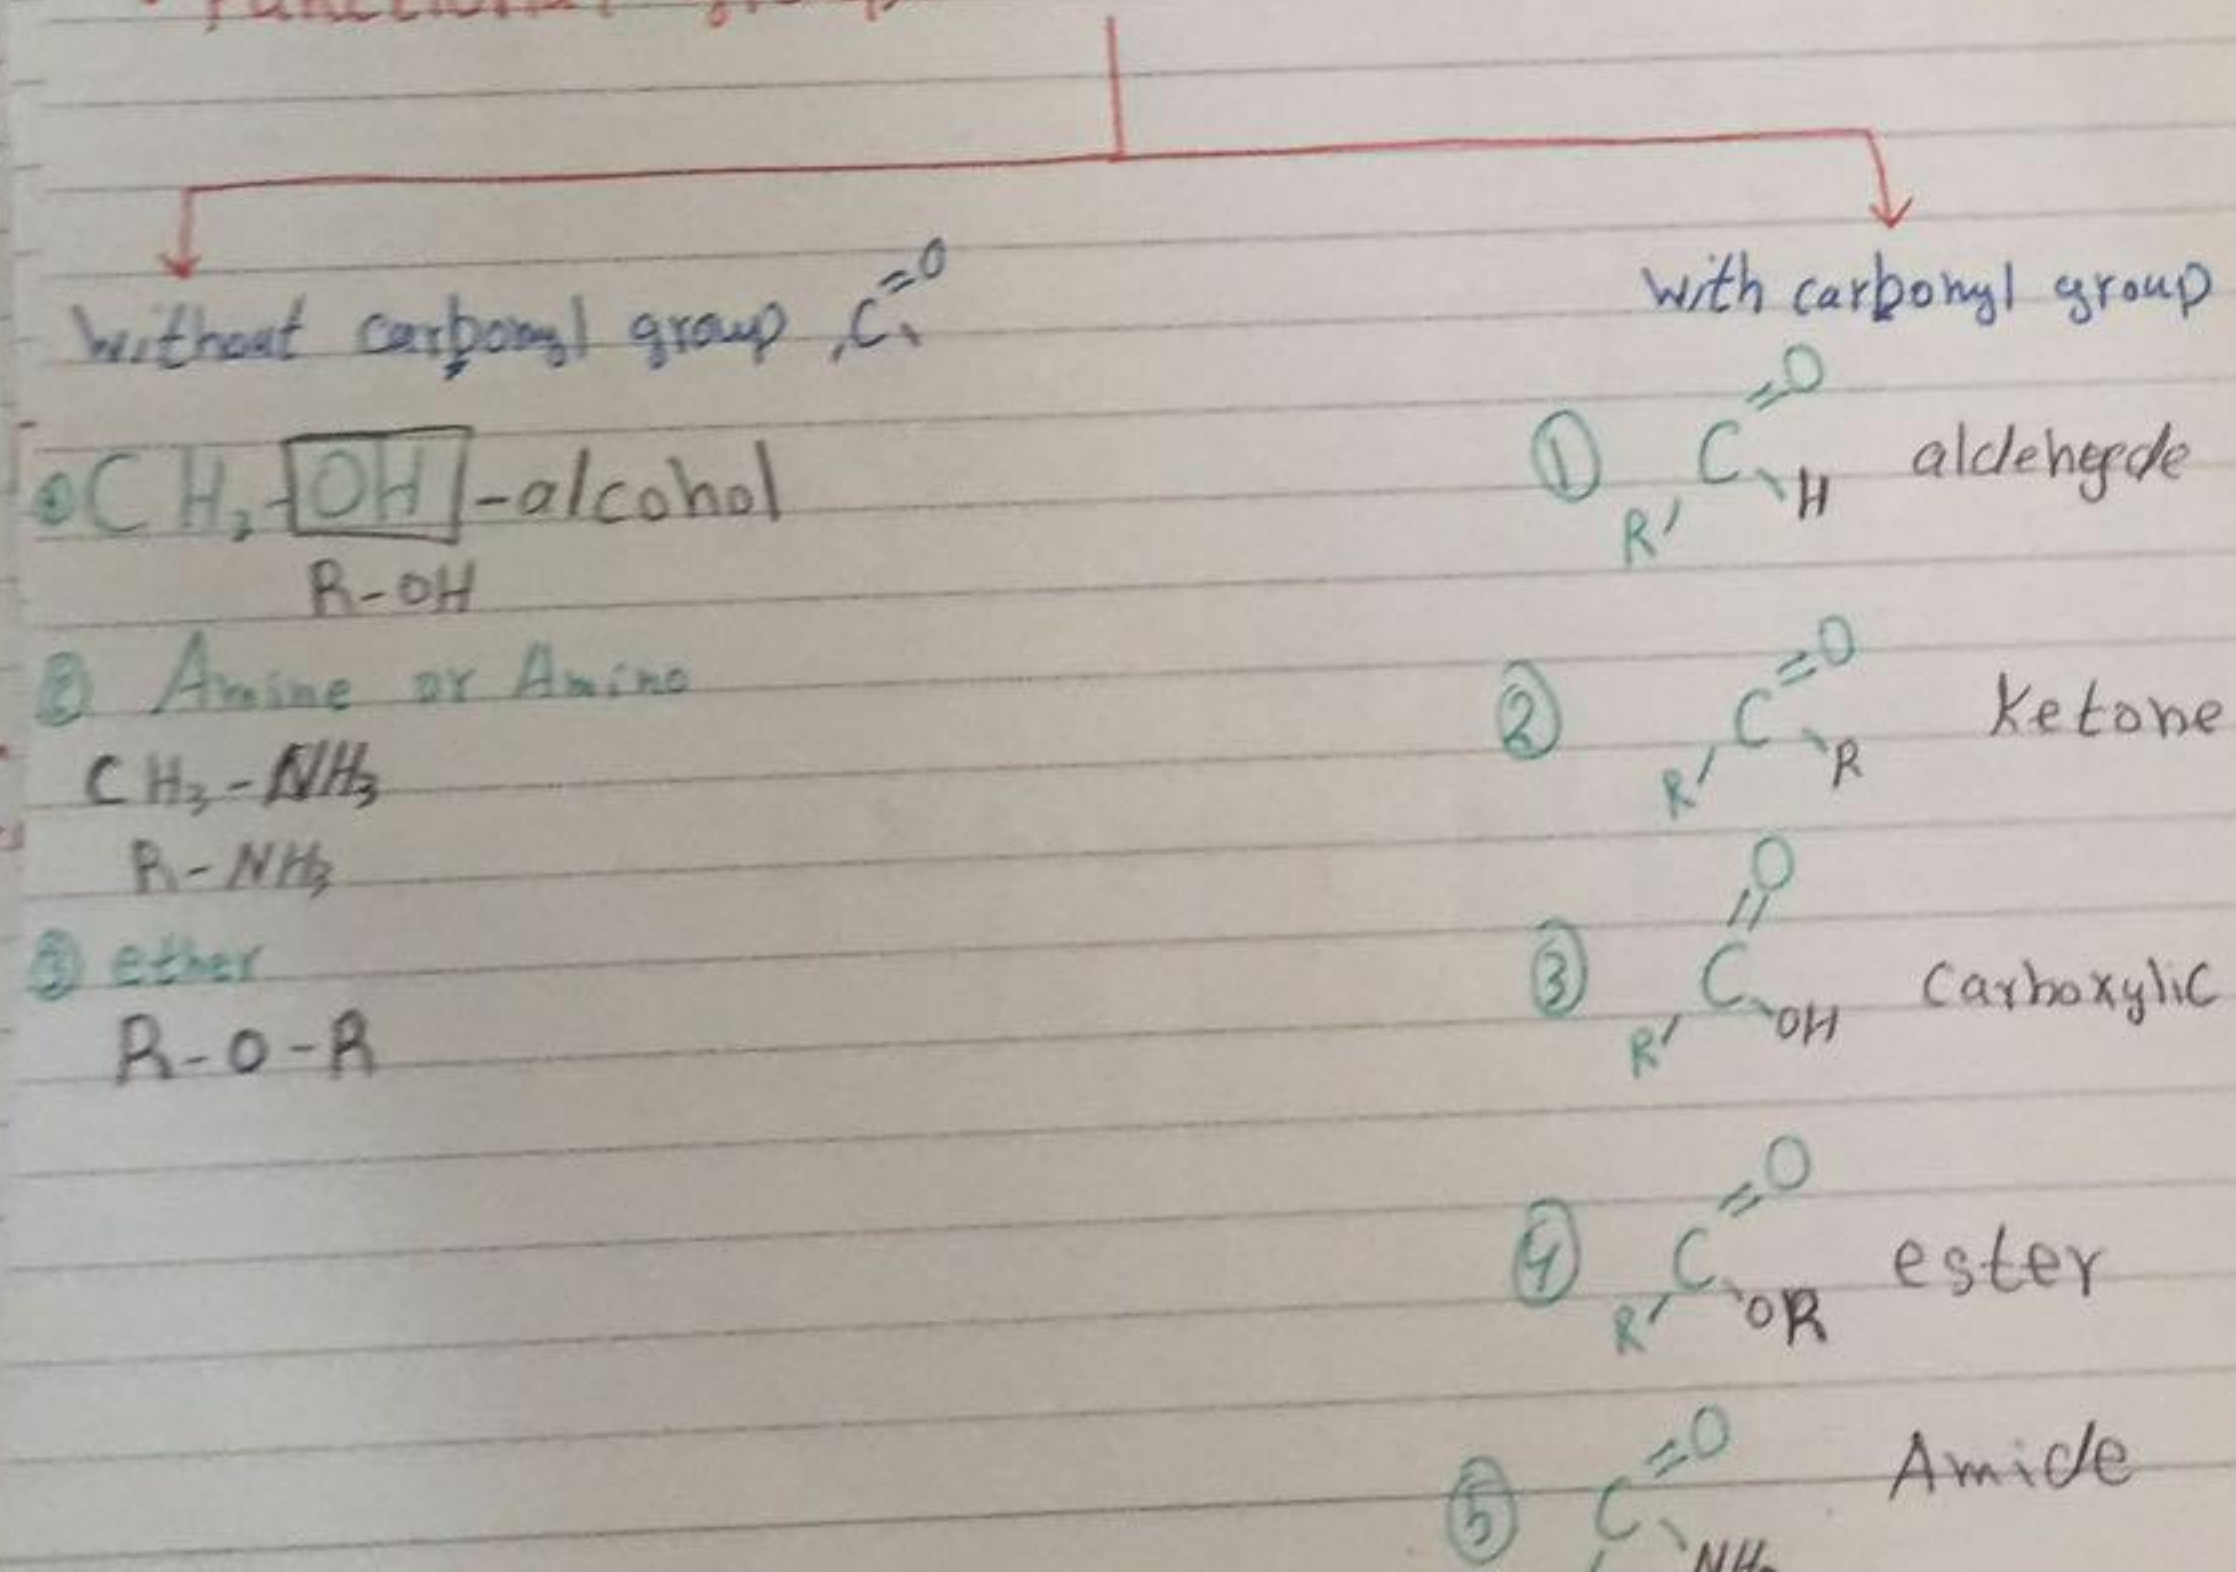 Functional group
without carbonyl group, C=O
① CH3-OH -alcohol
R-OH
② Amine or Amino
CH3-NH3
R-NH3
③ ether
R-O-R
with carbonyl group
① R' C =O H aldehyde
② R' C =O R Ketone
③ R' C =O OH Carboxylic
④ R' C =O OR ester
⑤ C =O Amide